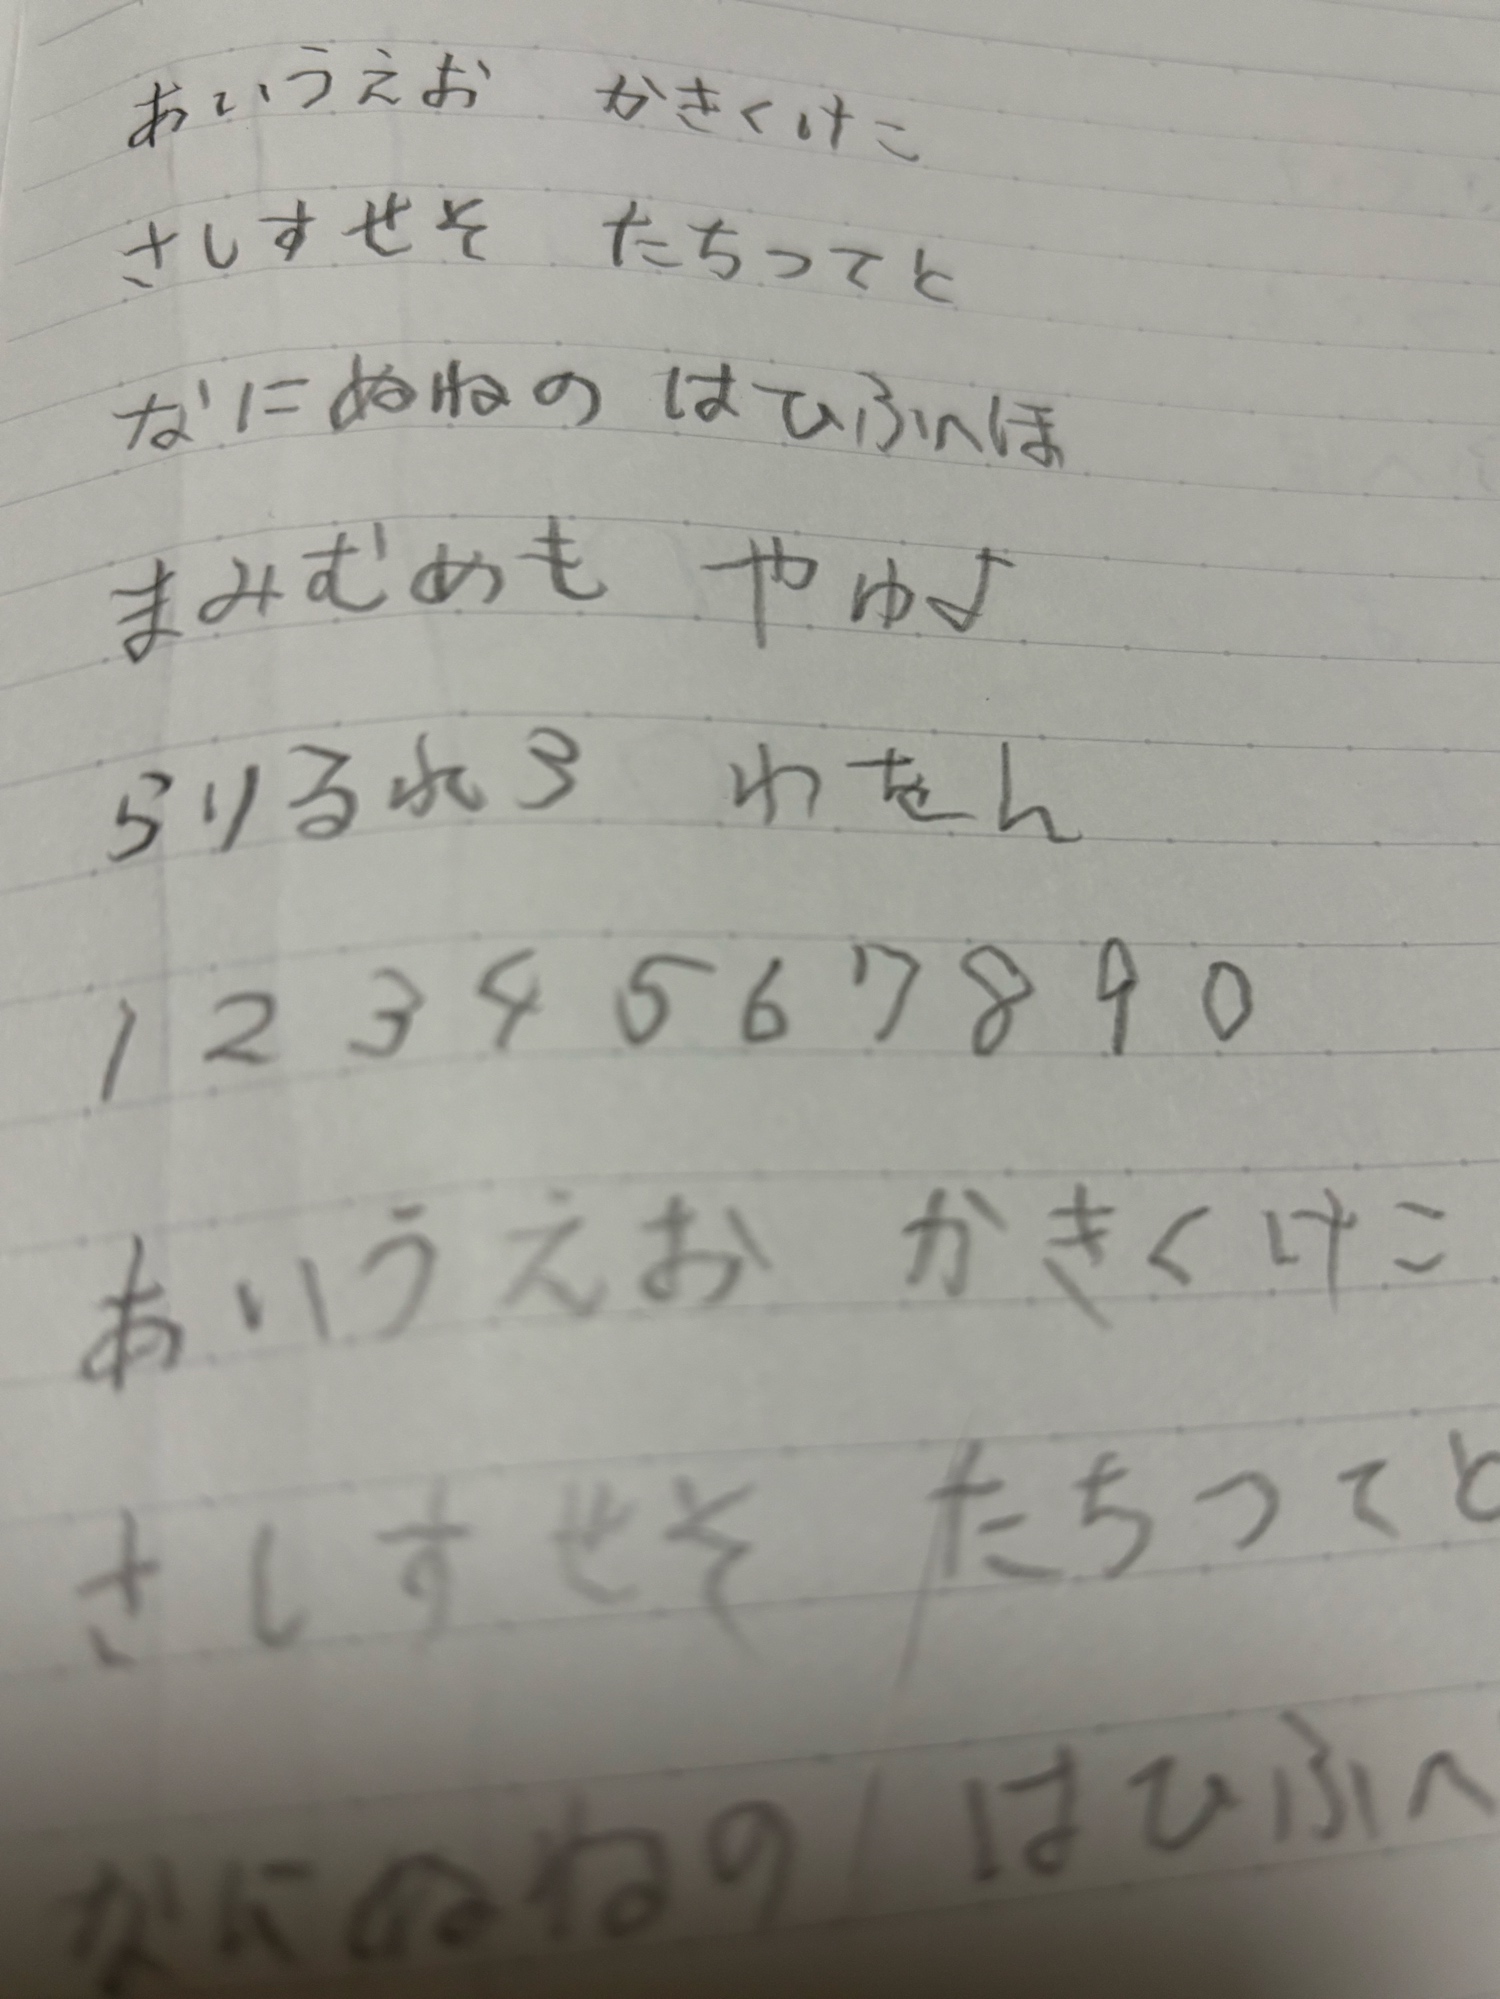 あいうえお かきくけこ
さしすせそ たちつてと
なにぬねの はひふへほ
まみむめも やゆよ
らりるれろ わをん
1 2 3 4 5 6 7 8 9 0
あいうえお かきくけこ
さしすせそ たちつてと
なにぬねの はひふへ